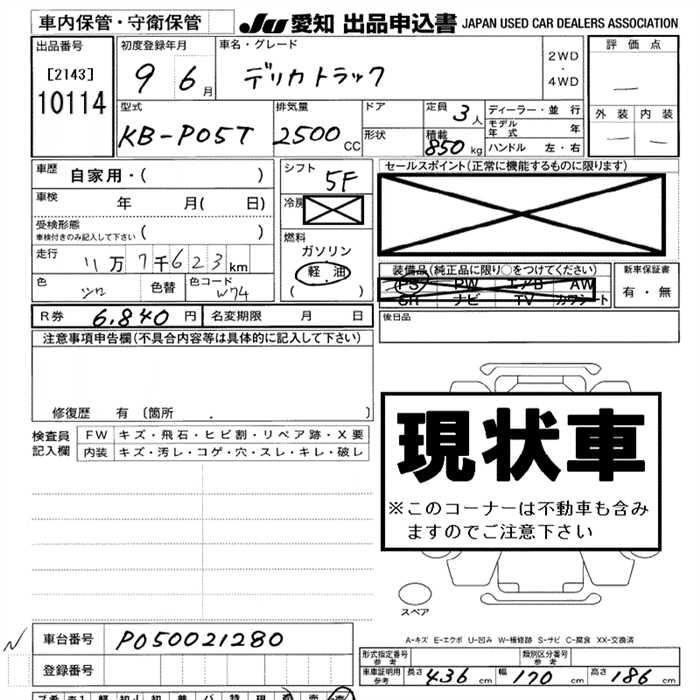 車内保管・守衛保管
JU 愛知 出品申込書 JAPAN USED CAR DEALERS ASSOCIATION
出品番号 [2143] 10114
初度登録年月 9 6月
車名・グレード デリカトラック
2WD・4WD
評価点 —
外装 — 内装 —
型式 KB-P05T
排気量 2500 CC
ドア
形状
定員 3人
積載 850kg
ディーラー・並行
モデル年式 年
ハンドル 左・右
車歴 自家用・( )
車検 年 月( 日)
受検形態
車検付きのみ記入して下さい ( )
走行 11万7千623km
色 シロ 色替 色コード W74
シフト 5F
冷房
燃料
ガソリン
軽油
( )
セールスポイント(正常に機能するものに限ります)
装備品(純正品に限り○をつけてください)
PS PW エアB AW
SR ナビ TV カワシート
新車保証書
有・無
R券 6,840円 名変期限 月 日
後日品
注意事項申告欄(不具合内容等は具体的に記入して下さい)
修復歴 有 [箇所 . ]
検査員記入欄
FW キズ・飛石・ヒビ割・リペア跡・X要
内装 キズ・汚レ・コゲ・穴・スレ・キレ・破レ
現状車
※このコーナーは不動車も含み
ますのでご注意下さい
スペア
A-キズ E-エクボ U-凹み W-補修跡 S-サビ C-腐食 XX-交換済
車台番号 P050021280
登録番号
形式指定番号 参考
類別区分番号 参考
車庫証明用 参考 長さ 436cm 幅 170cm 高さ 186cm